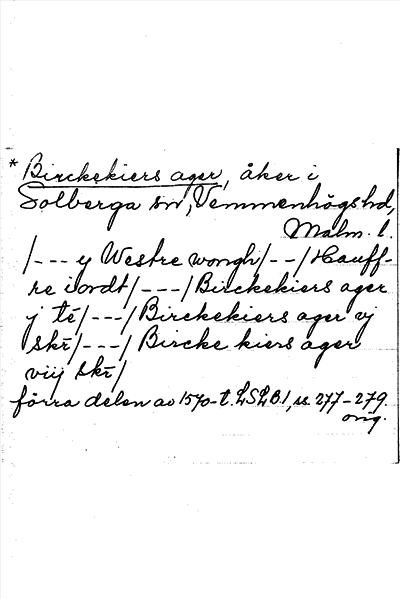 * Birckekiers ager, åker i
Solberga sn, Vemmenhögs hd,
Malm. l.
/--- y Westre wongh/--/Hauff-
re iordt/---/Birckekiers ager
j té/---/Birckekiers ager vj
skr/---/Bircke kiers ager
viij skr/
förra delen av 1570-t. LSLB1, ss. 277-279.
orig.